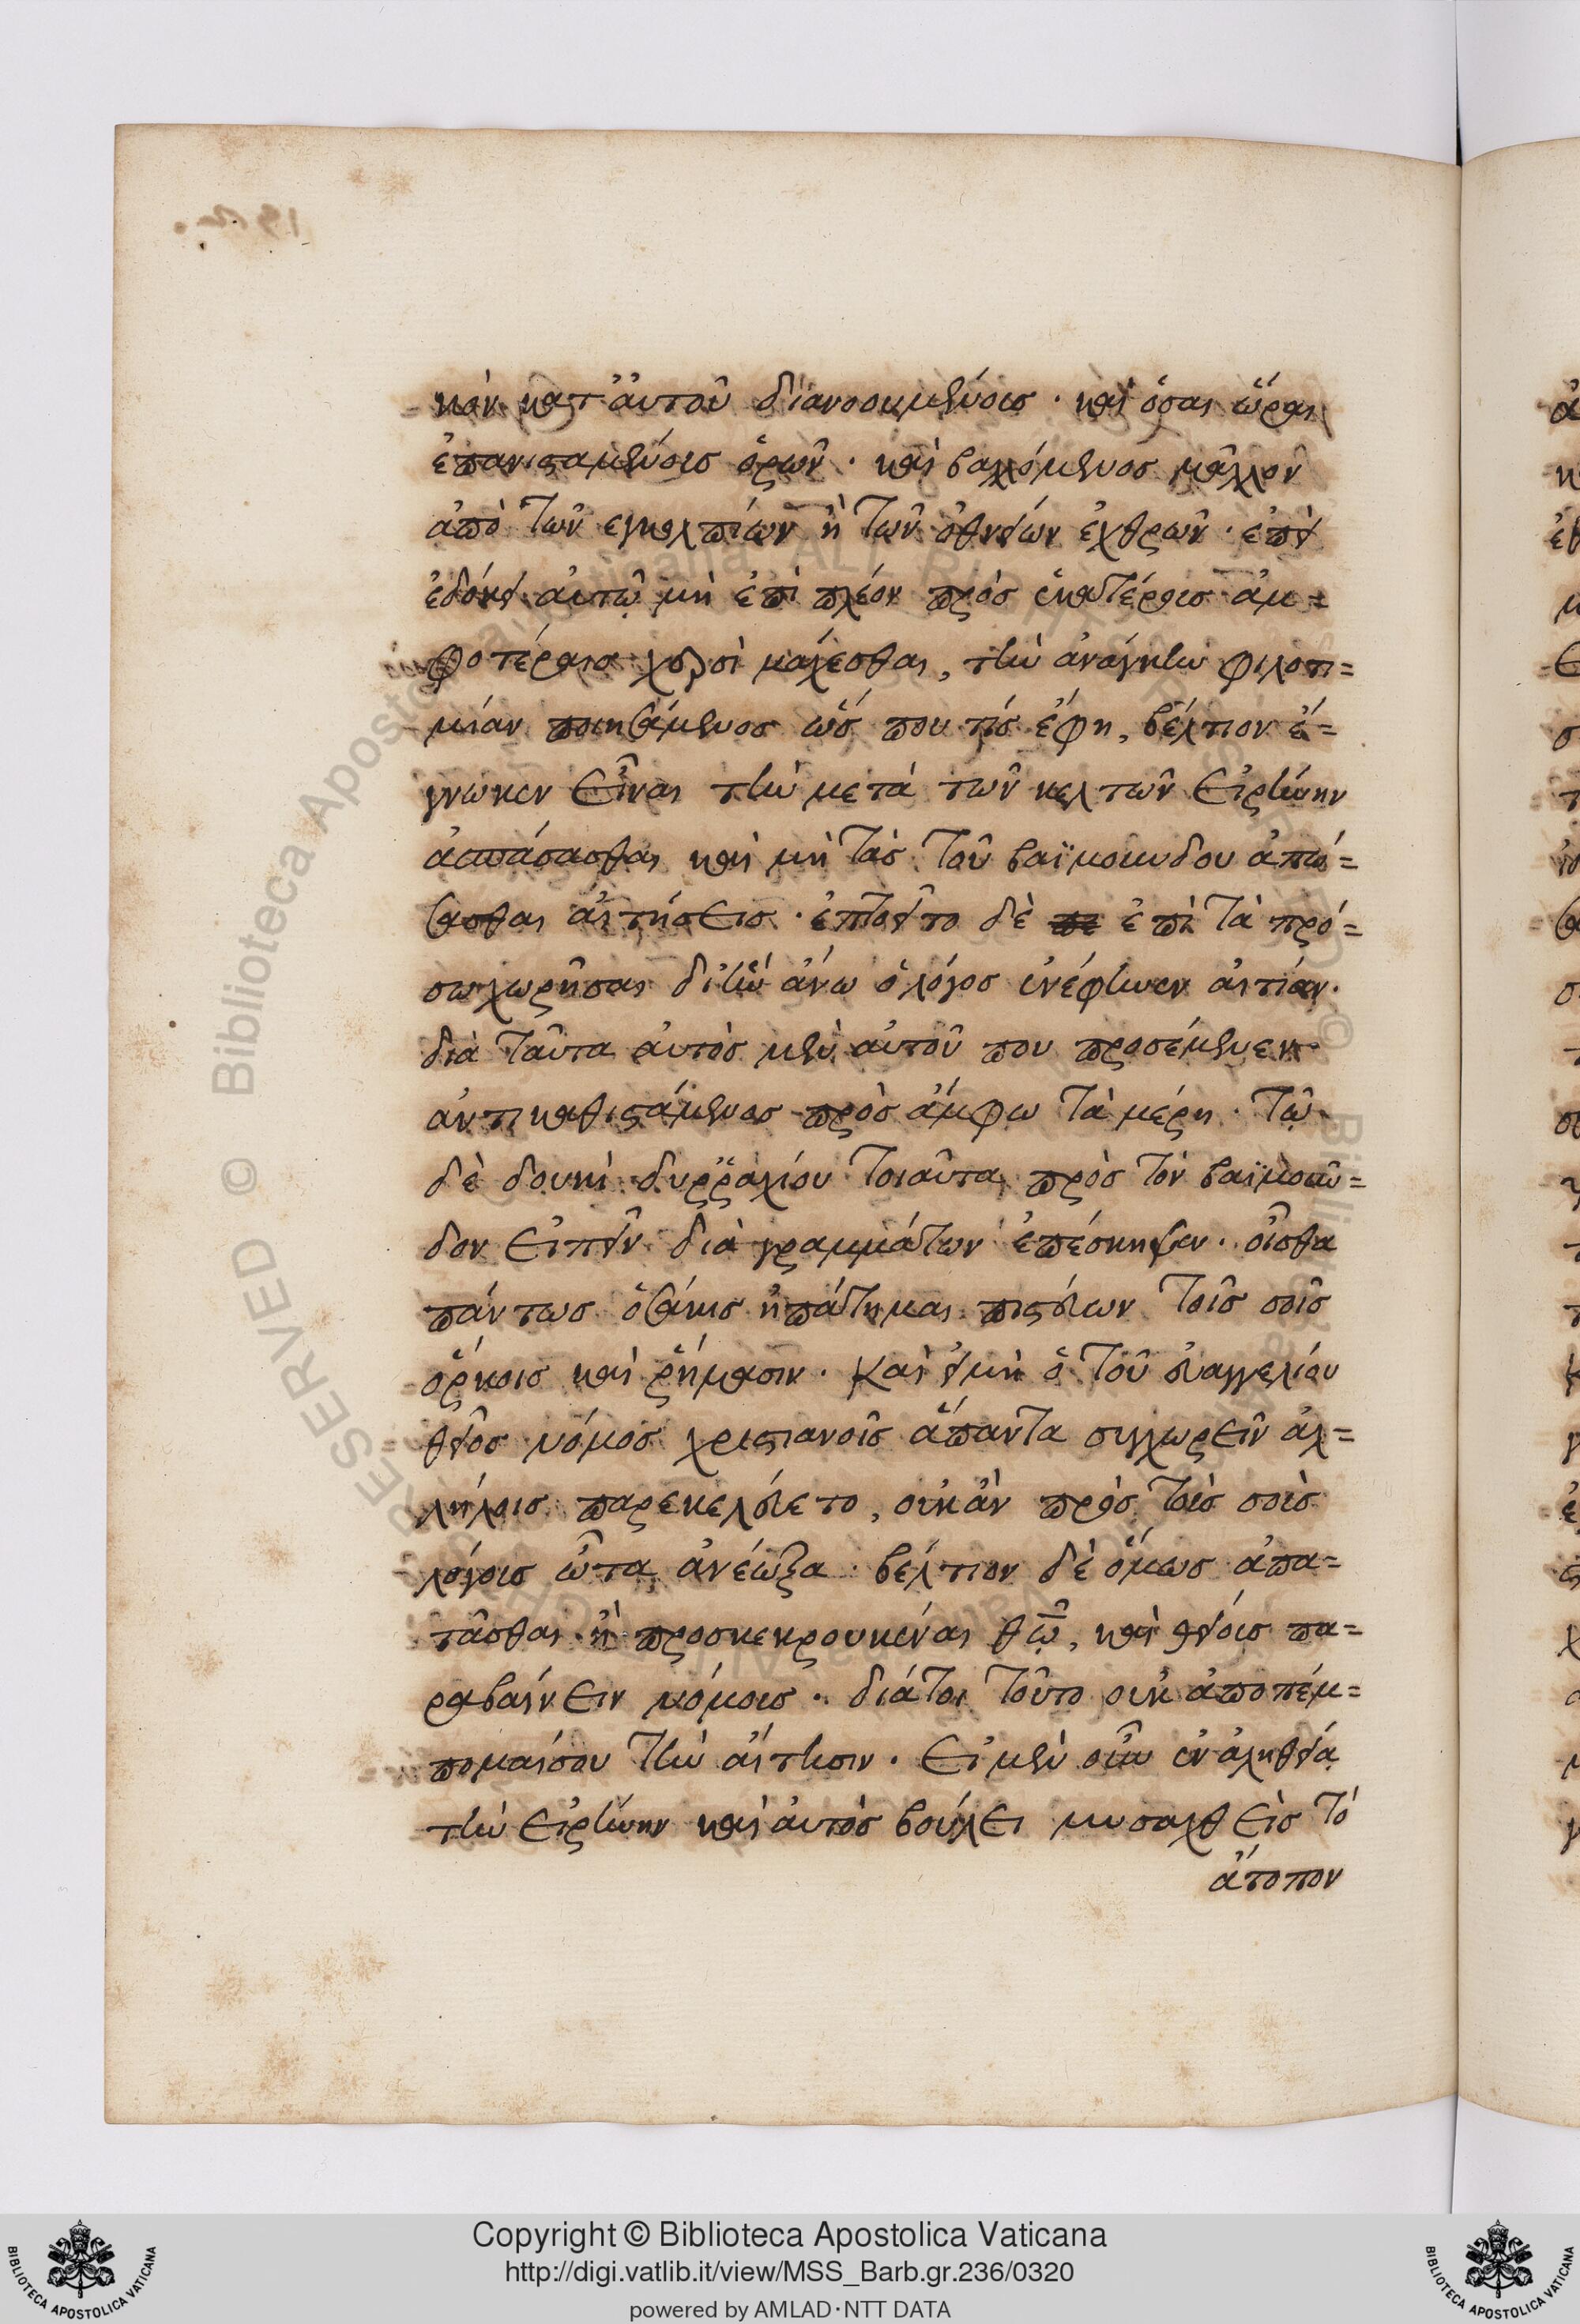 κὸν κατ' ἀυτοῦ διανοουμένοις · καὶ ὅσαι ὧραι
ἐπανισταμένοις ὁρῶν · καὶ βαλλόμενος μᾶλλον
ἀπὸ τῶν εγκολπίων ἢ τῶν ὀθνείων ἐχθρῶν · επεὶ
ἐδόκει ἀυτῷ μὴ ἐπὶ πλέον πρὸς ἑκατέραις ἀμ=
φοτέραις χερσὶ μάχεσθαι, τὴν ἀνάγκην φιλοτι=
μίαν ποιησάμενος ὥς που τίς ἔφη, βέλτιον ἔ=
γνωκεν εἶναι τὴν μετὰ τῶν κελτῶν εἰρήνην
ἀσπάσασθαι καὶ μὴ τὰς τοῦ βαϊμούνδου ἀπώ=
σασθαι ἀιτήσεις · ἐπτοεῖτο δὲ ἐπὶ τὰ πρό=
σω χωρῆσαι δι' ἣν ἄνω ὁ λόγος ἐνέφηνεν ἀιτίαν ·
διὰ ταῦτα ἀυτὸς μὲν ἀυτοῦ που προσέμενεν
ἀντικαθιστάμενος πρὸς ἄμφω τὰ μέρη · τῷ
δὲ δουκὶ δυῤῥαχίου τοιαῦτα πρὸς τὸν βαϊμοῦν=
δον εἰπεῖν διὰ γραμμάτων ἐπέσκηψεν · οἶσθα
πάντως ὁσάκις ἠπάτημαι πιστεύων τοῖς σοῖς
ὅρκοις καὶ ῥήμασιν · Καὶ εἰ μὴ ὁ τοῦ ἐυαγγελίου
θεῖος νόμος χριστιανοῖς ἅπαντα συγχωρεῖν ἀλ=
λήλοις παρεκελεύετο, οὐκ ἂν πρὸς τοὺς σοὺς
λόγοις ὦτα ἀνέωξα · βέλτιον δὲ ὅμως ἀπα=
τᾶσθαι ἢ προσκεκρουκέναι θῷ, καὶ θείοις πα=
ραβαίνειν νόμοις · διάτοι τοῦτο οὐκ ἀποπέμ=
πομαί σου τὴν ἀίτησιν · Εἰ μὲν οὖν ἐν ἀληθείᾳ
τὴν εἰρήνην καὶ ἀυτὸς βούλει μυσαχθεὶς τὸ
ἄτοπον
Copyright © Biblioteca Apostolica Vaticana
http://digi.vatlib.it/view/MSS_Barb.gr.236/0320
powered by AMLAD·NTT DATA